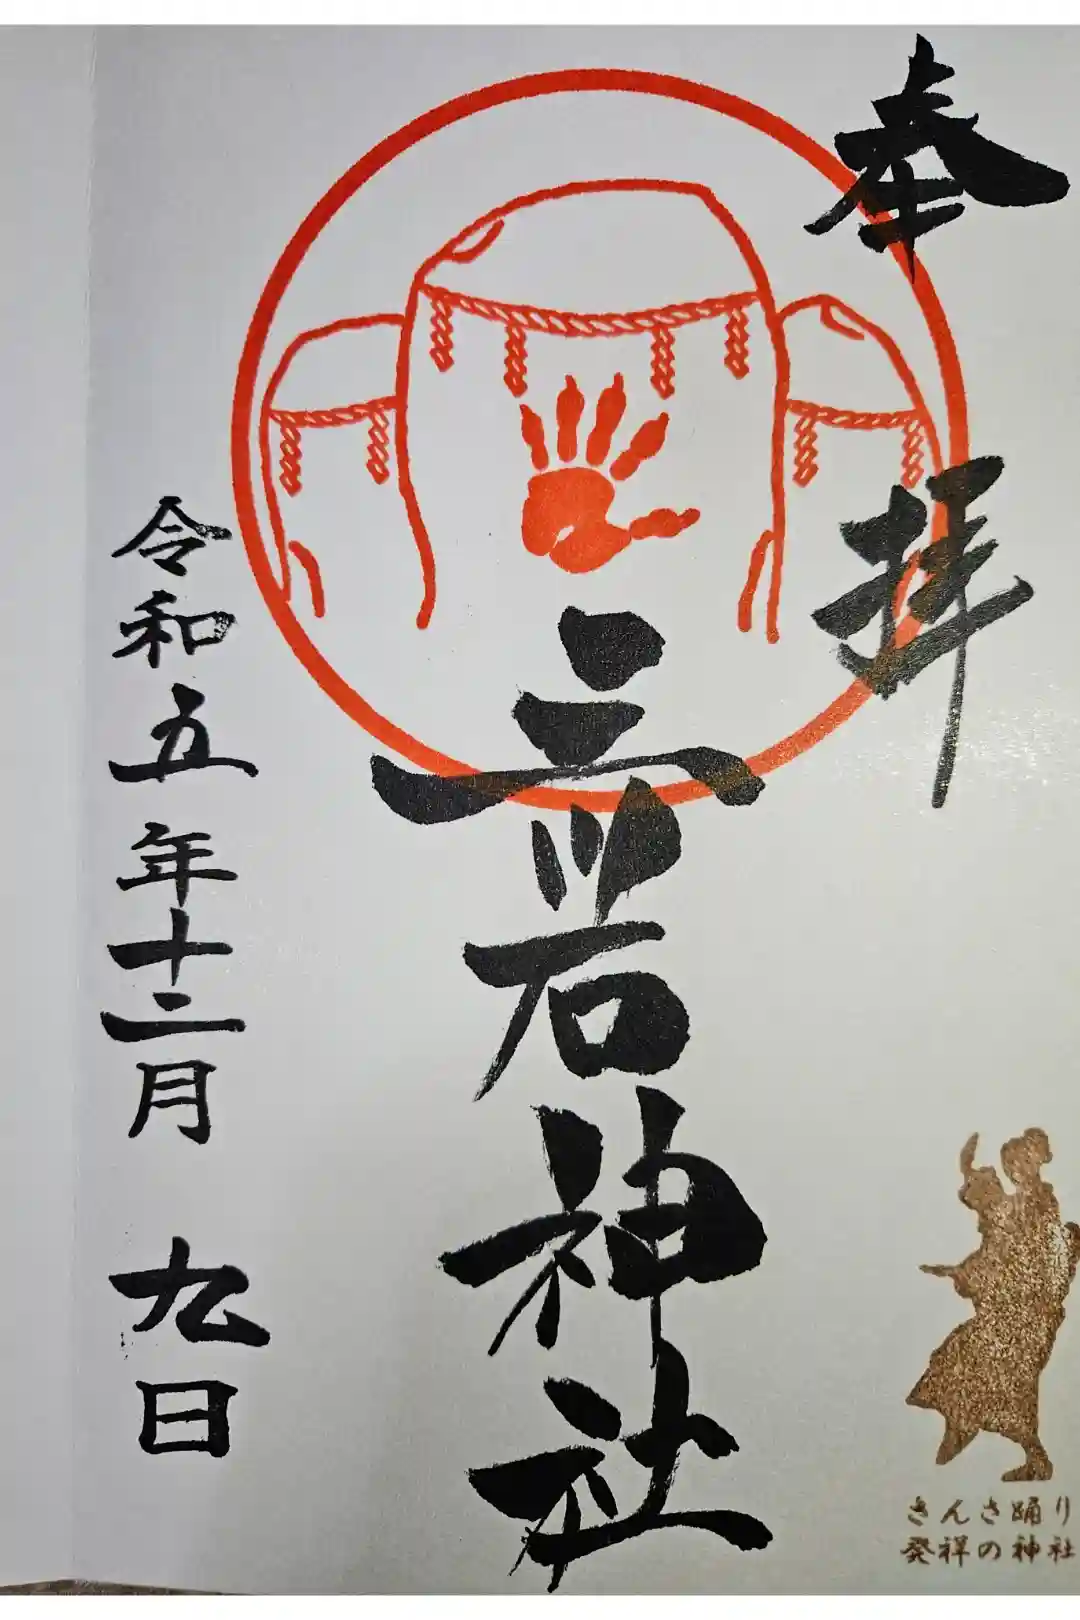 奉拝
三岩神社
令和五年十二月九日
さんさ踊り
発祥の神社